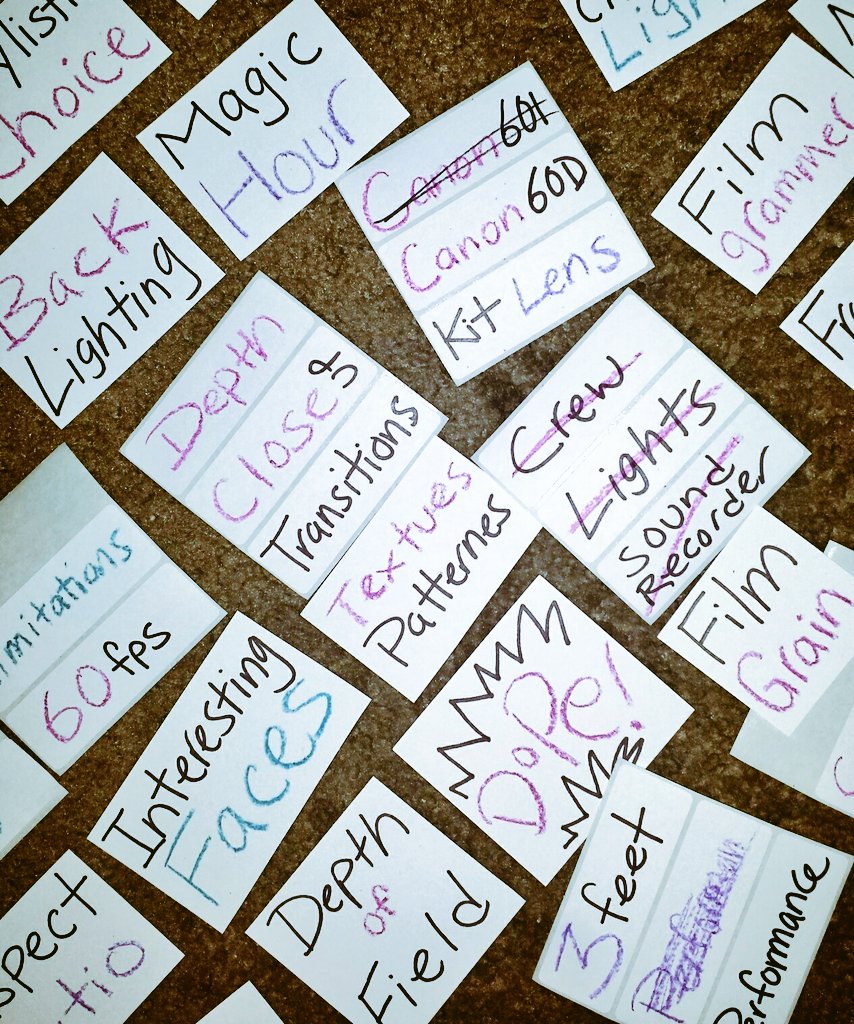 Choice
Magic
Hour
Canon 60t
Canon 60D
Kit Lens
Film
grammer
Back
Lighting
Depth
Closes
Transitions
Textues
Patternes
Crew
Lights
Sound
Recorder
Film
Grain
imitations
60 fps
Interesting
Faces
Dope!
Depth
of
Field
3 feet
Performance
spect
tio
Ligh